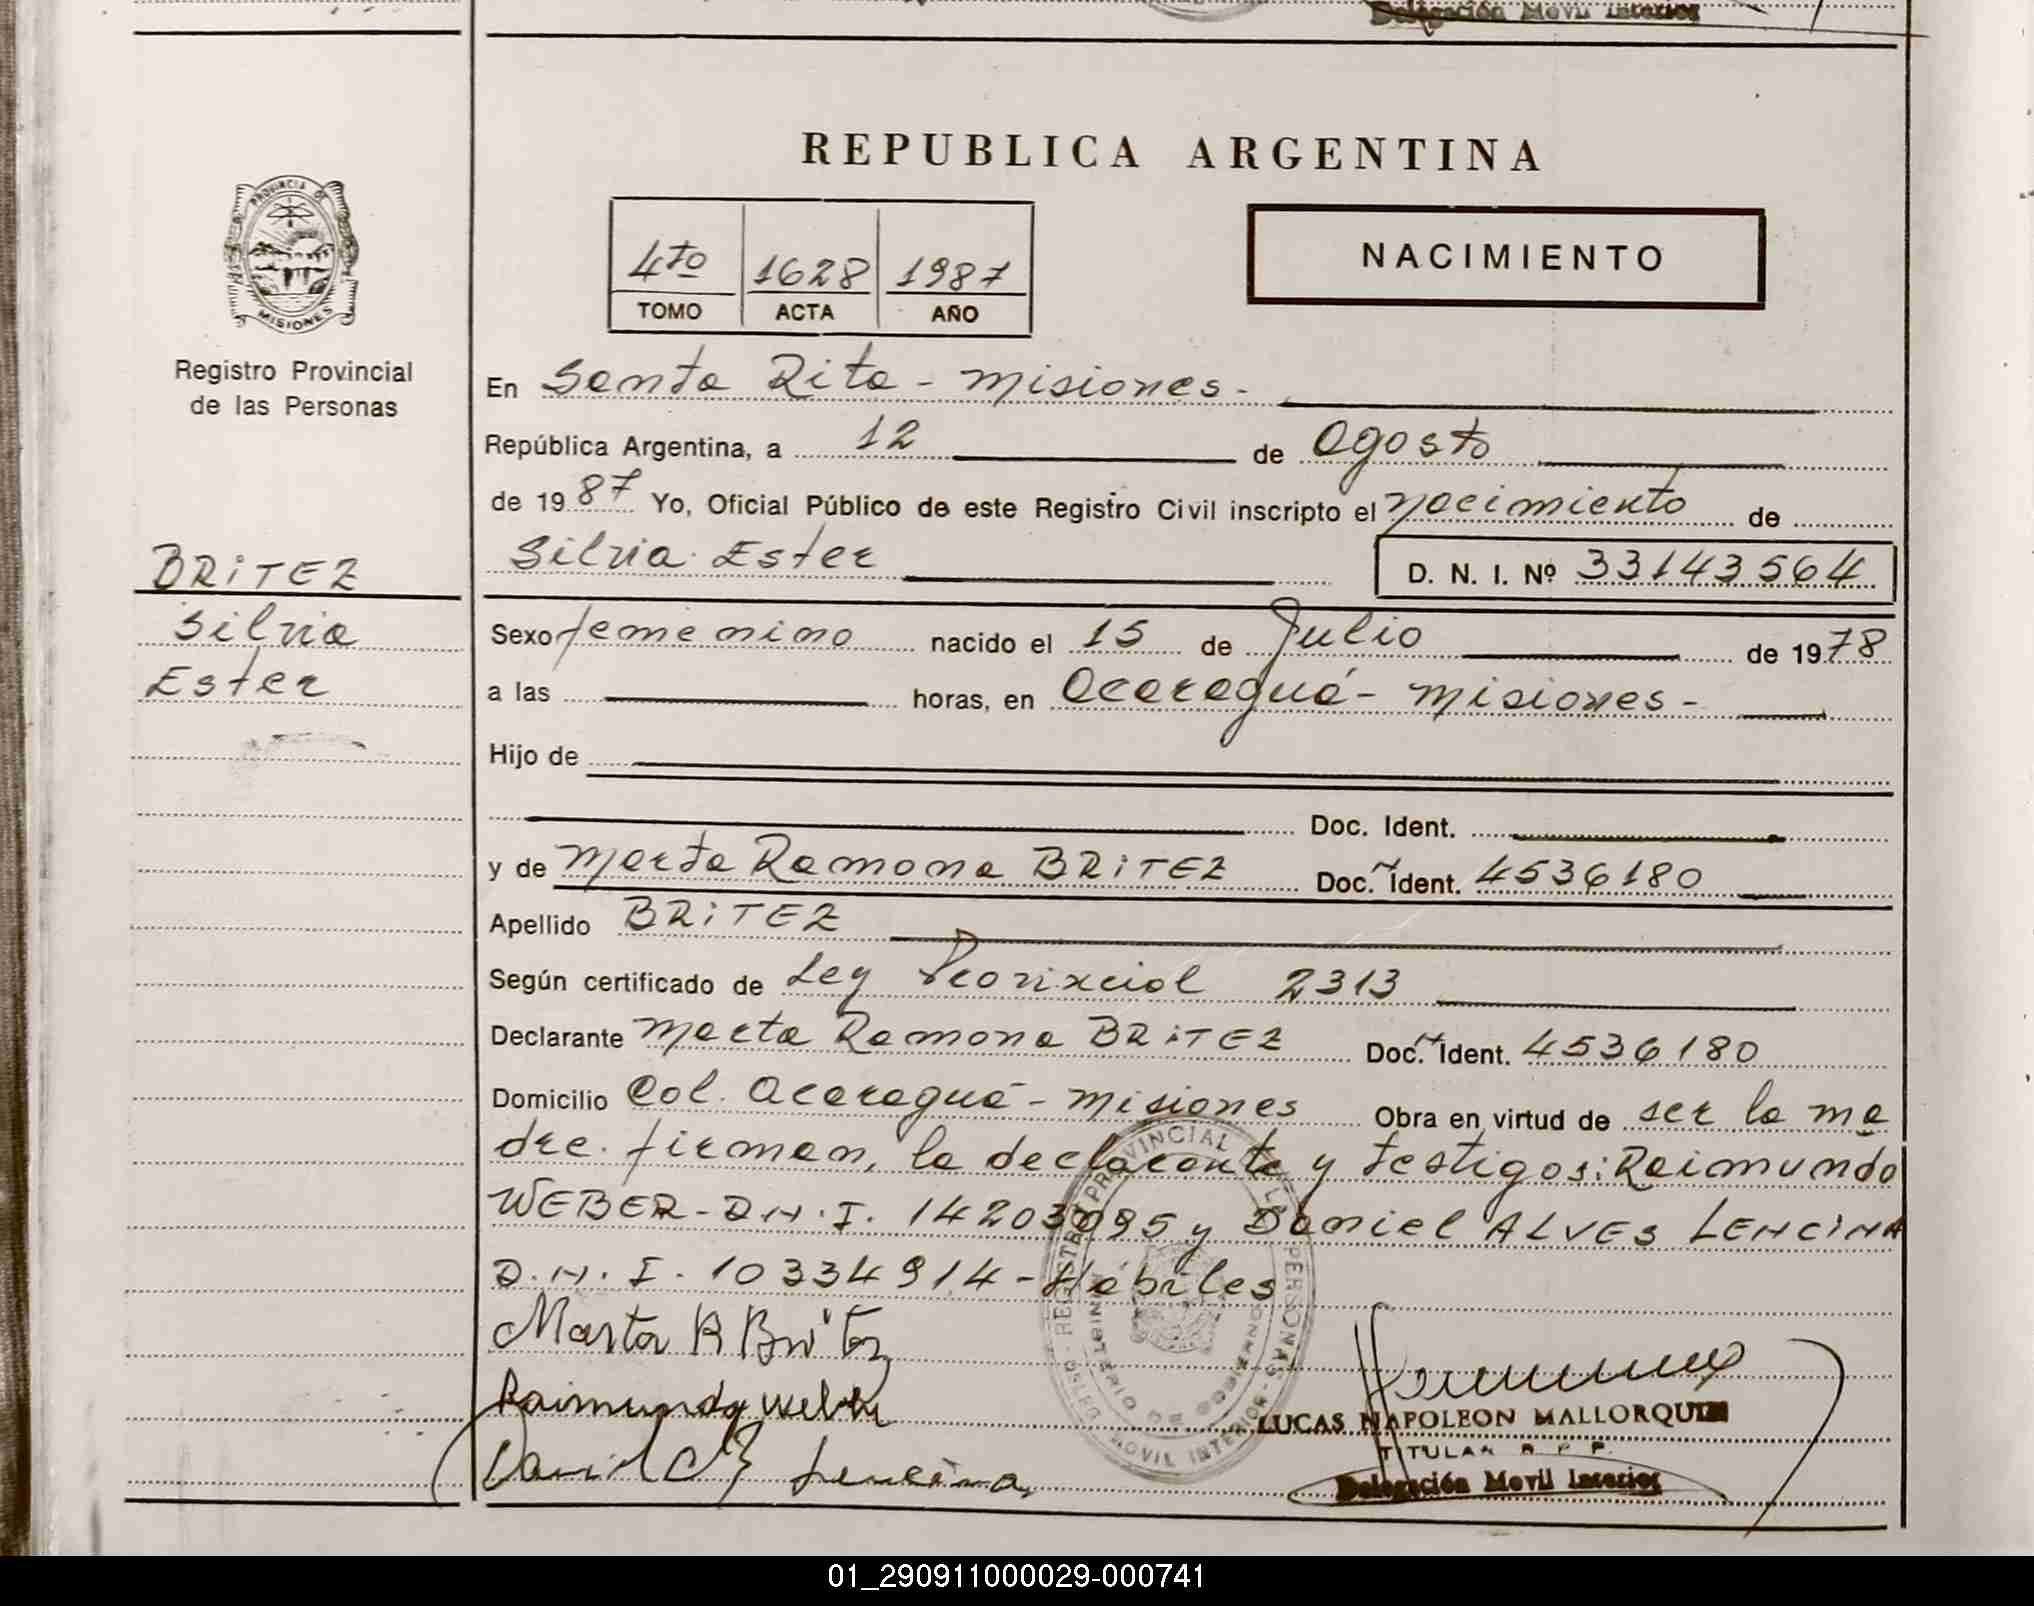 Delegación Movil Interior
REPUBLICA ARGENTINA
PROVINCIA DE
MISIONES
4to 1628 1987
TOMO ACTA AÑO
NACIMIENTO
Registro Provincial
de las Personas
En Santa Rita - Misiones -
República Argentina, a 12 de Agosto
de 1987 Yo, Oficial Público de este Registro Civil inscripto el nacimiento de
Silvia Ester D. N. I. Nº 33143564
BRITEZ
Silvia
Ester
Sexo femenino nacido el 15 de Julio de 1978
a las horas, en Acaraguá - Misiones -
Hijo de
Doc. Ident.
y de Marta Ramona BRITEZ Doc. Ident. 4536180
Apellido BRITEZ
Según certificado de Ley Provincial 2313
Declarante Marta Ramona BRITEZ Doc. Ident. 4536180
Domicilio Col. Acaraguá - Misiones Obra en virtud de ser la ma
dre. firman, la declarante y testigos: Raimundo
WEBER - D.N.I. 14203095 y Daniel ALVES LENCINA
D.N.I. 10334914 - Hábiles
Marta R Britez
Raimundo Weber
LUCAS NAPOLEON MALLORQUIN
TITULAR R. P. P.
Delegación Movil Interior
REGISTRO PROVINCIAL DE LAS PERSONAS
MINISTERIO DE GOBIERNO
MOVIL INTERIOR
01_290911000029-000741